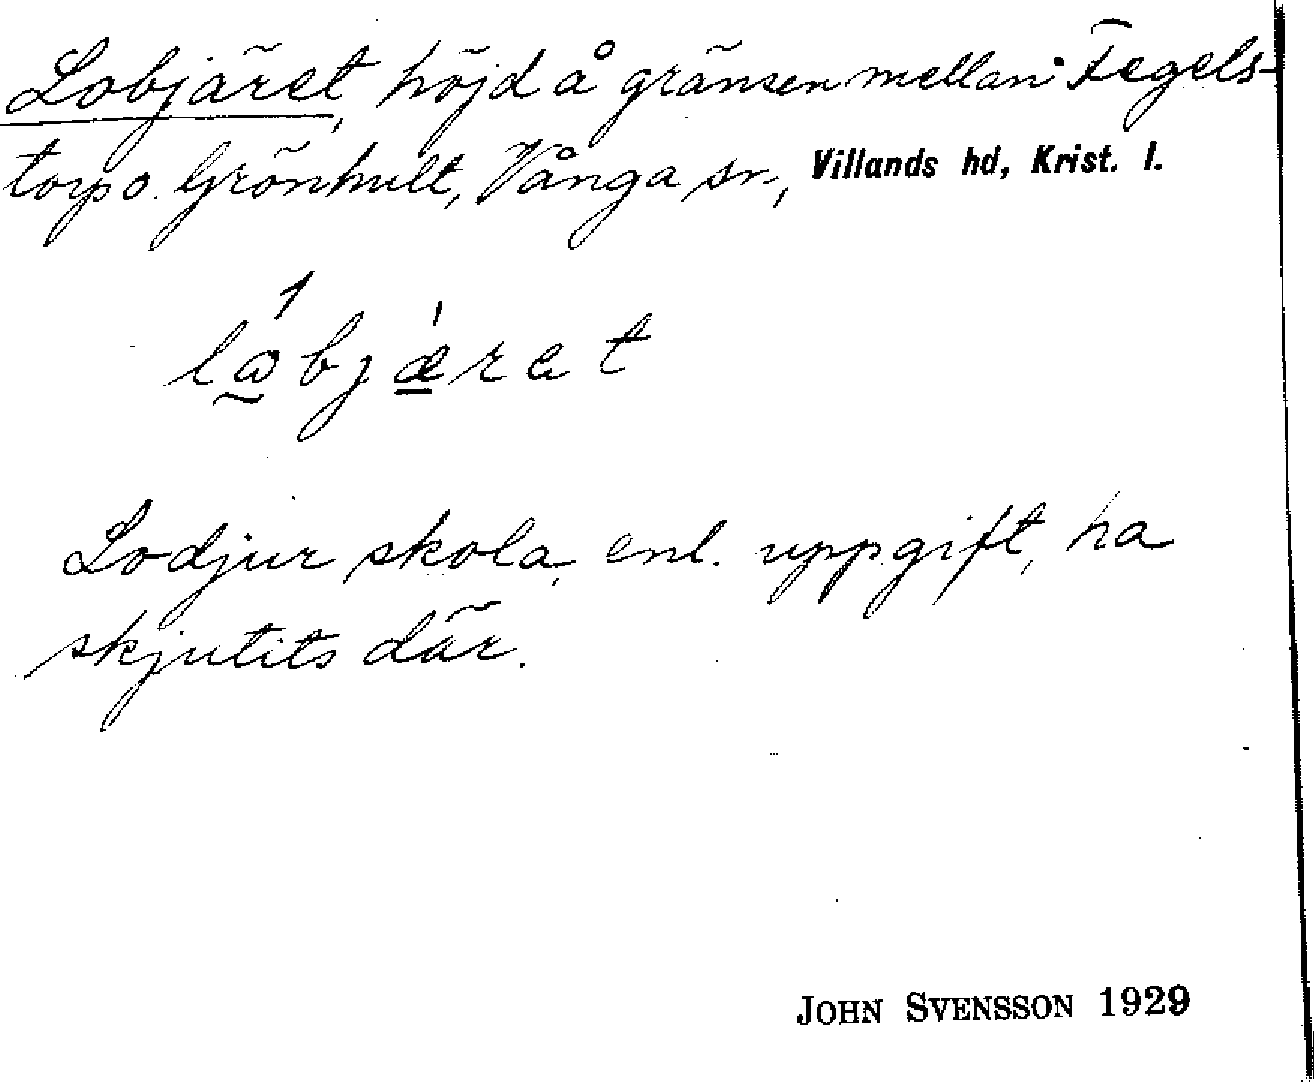 Lobjäret, höjd å gränsen mellan Tegels-
torp o. Grönhult, Vånga sn, Villands hd, Krist. l.
låbjæret
Lodjur skola, enl. uppgift, ha
skjutits där.
JOHN SVENSSON 1929